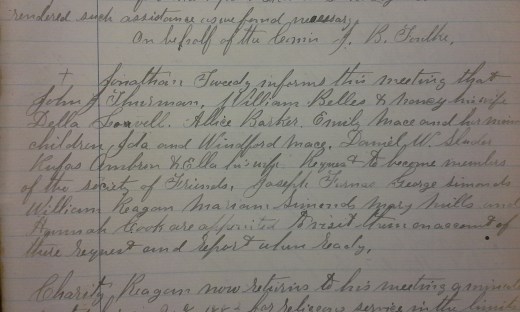 rendered such assistance as we found necessary,
On behalf of the Comm J. B. Foulke.
+ Jonathan Tweedy informs this meeting that
John J William Belles & Nancy his wife
Della Alice Barker. Emily Mace and her minor
children, Ida and Windford Macy, Daniel W. Slader
Rufas Ambron & Ella his wife Request to become members
of the society of Friends. Joseph Furnas George Simonds
William Reagan Mariam Simonds Mary Mills and
Hannah Cook are appointed to visit them on account of
there request and report when ready.
Charity Reagan now returns to his meeting a minute
for religious service in the limits